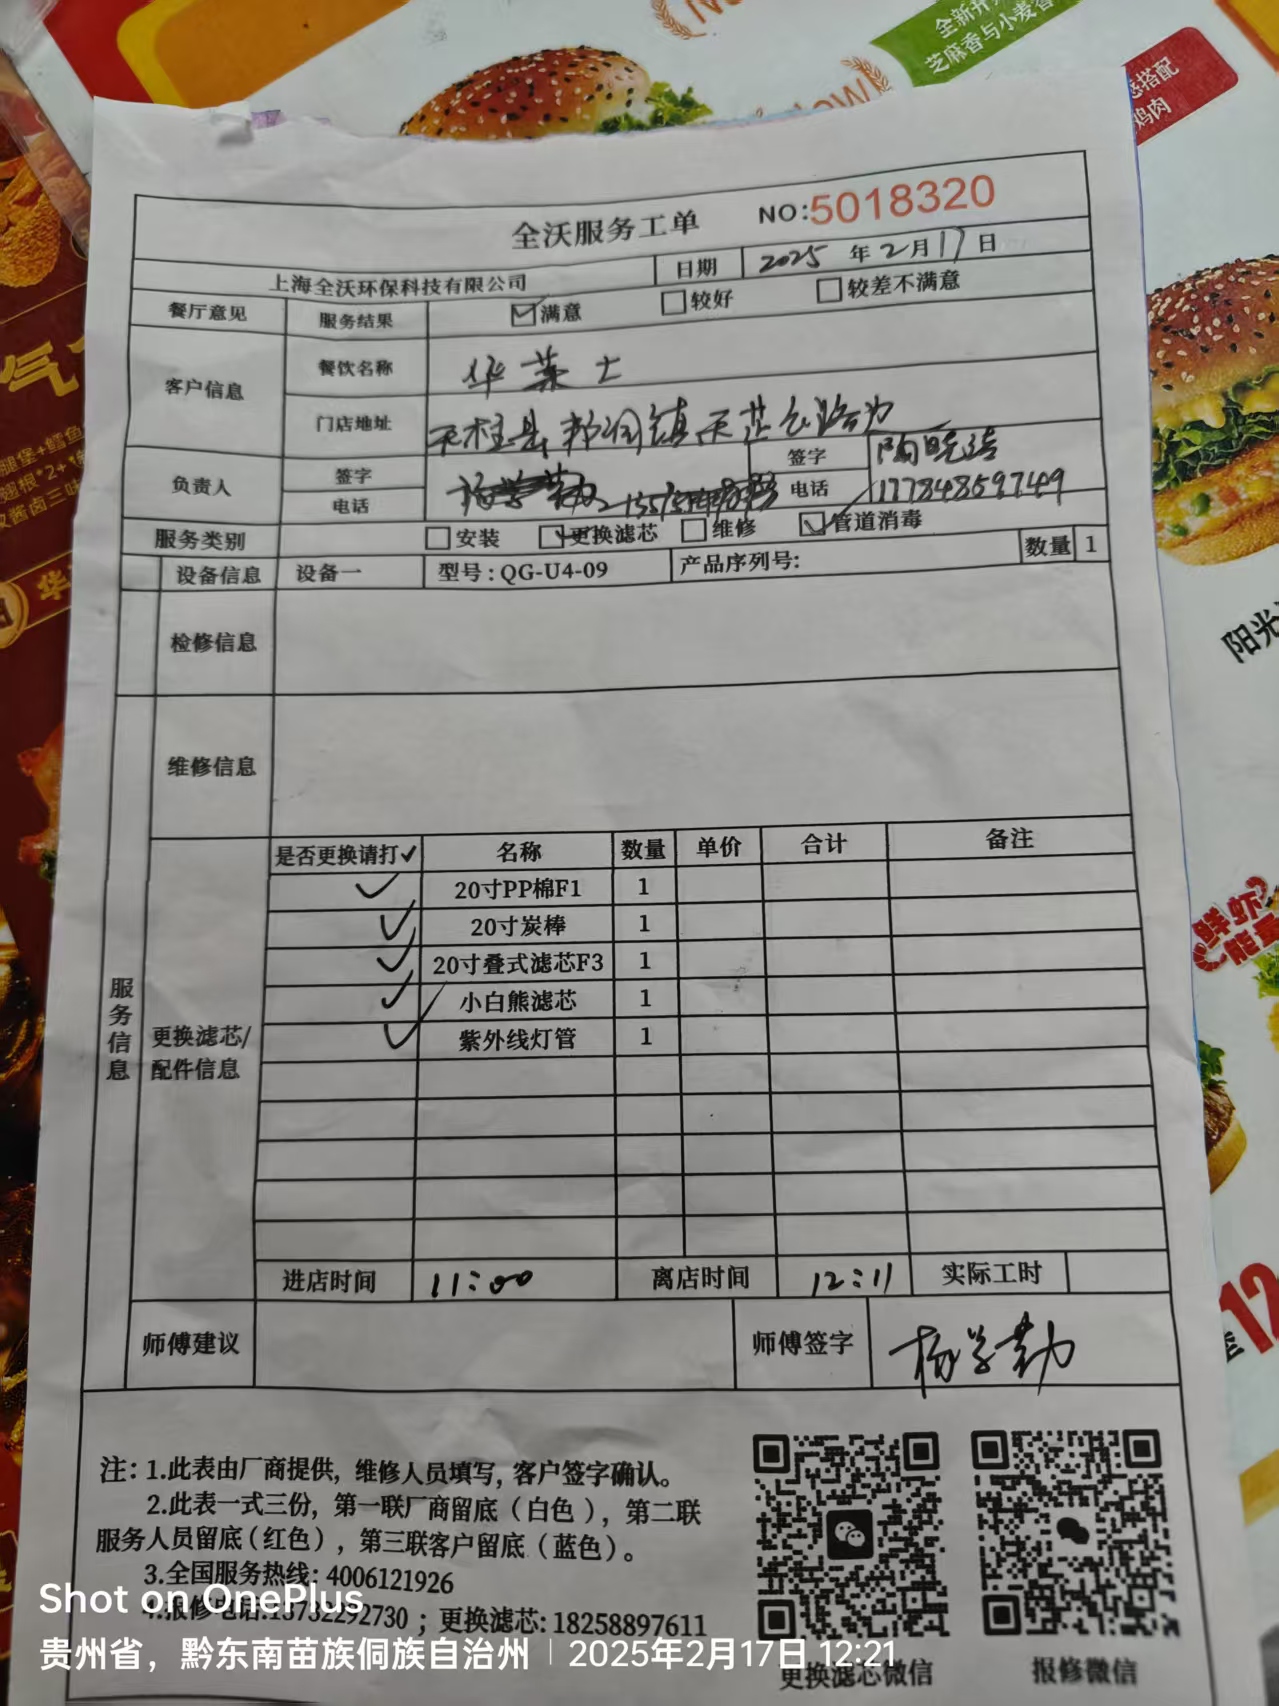 全新开
芝麻香与小麦香
New
搭配
鸡肉
全沃服务工单 NO:5018320
上海全沃环保科技有限公司 日期 2025 年 2 月 17 日
餐厅意见 服务结果 满意 较好 较差不满意
客户信息 餐饮名称 华莱士
门店地址 天柱县邦洞镇天芷公路
负责人 签字 签字
电话 电话 17784859749
服务类别 安装 更换滤芯 维修 管道消毒
设备信息 设备一 型号:QG-U4-09 产品序列号: 数量 1
检修信息
维修信息
服务信息
更换滤芯/
配件信息
是否更换请打✓ 名称 数量 单价 合计 备注
✓ 20寸PP棉F1 1
✓ 20寸炭棒 1
✓ 20寸叠式滤芯F3 1
✓ 小白熊滤芯 1
✓ 紫外线灯管 1
进店时间 11:00 离店时间 12:11 实际工时
师傅建议 师傅签字 杨学勤
注:1.此表由厂商提供, 维修人员填写, 客户签字确认。
2.此表一式三份, 第一联厂商留底(白色), 第二联
服务人员留底(红色), 第三联客户留底(蓝色)。
3.全国服务热线: 4006121926
4.报修电话:13732292730 ; 更换滤芯: 18258897611
更换滤芯微信 报修微信
Shot on OnePlus
贵州省，黔东南苗族侗族自治州 | 2025年2月17日 12:21
气
阳光
鲜虾
12